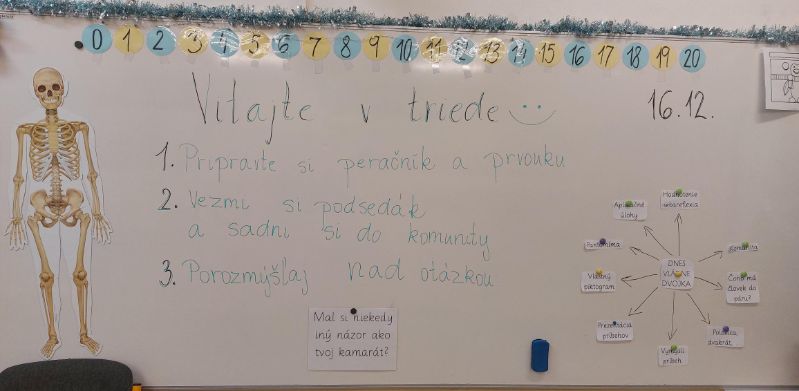 0 1 2 3 4 5 6 7 8 9 10 11 12 13 14 15 16 17 18 19 20
Vitajte v triede
16.12.
1. Pripravte si peračník a prvouku
2. Vezmi si podsedák
a sadni si do komunity
3. Porozmýšľaj nad otázkou
Mal si niekedy
iný názor ako
tvoj kamarát?
DNES
VLÁDNE
DVOJKA
Hodnotenie
sebareflexia
Komunita
Čoho má
človek do
páru?
Polovica,
dvakrát
Vymysli
príbeh
Prezentácia
príbehov
Vlastný
piktogram
Pantomíma
Aplikačné
úlohy